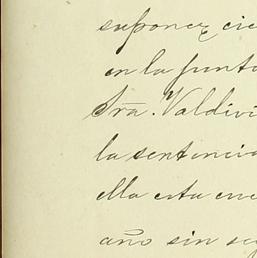 suponer cie
en la punta
Sra. Valdivi
la sentencia
ella esta cue
año sin se